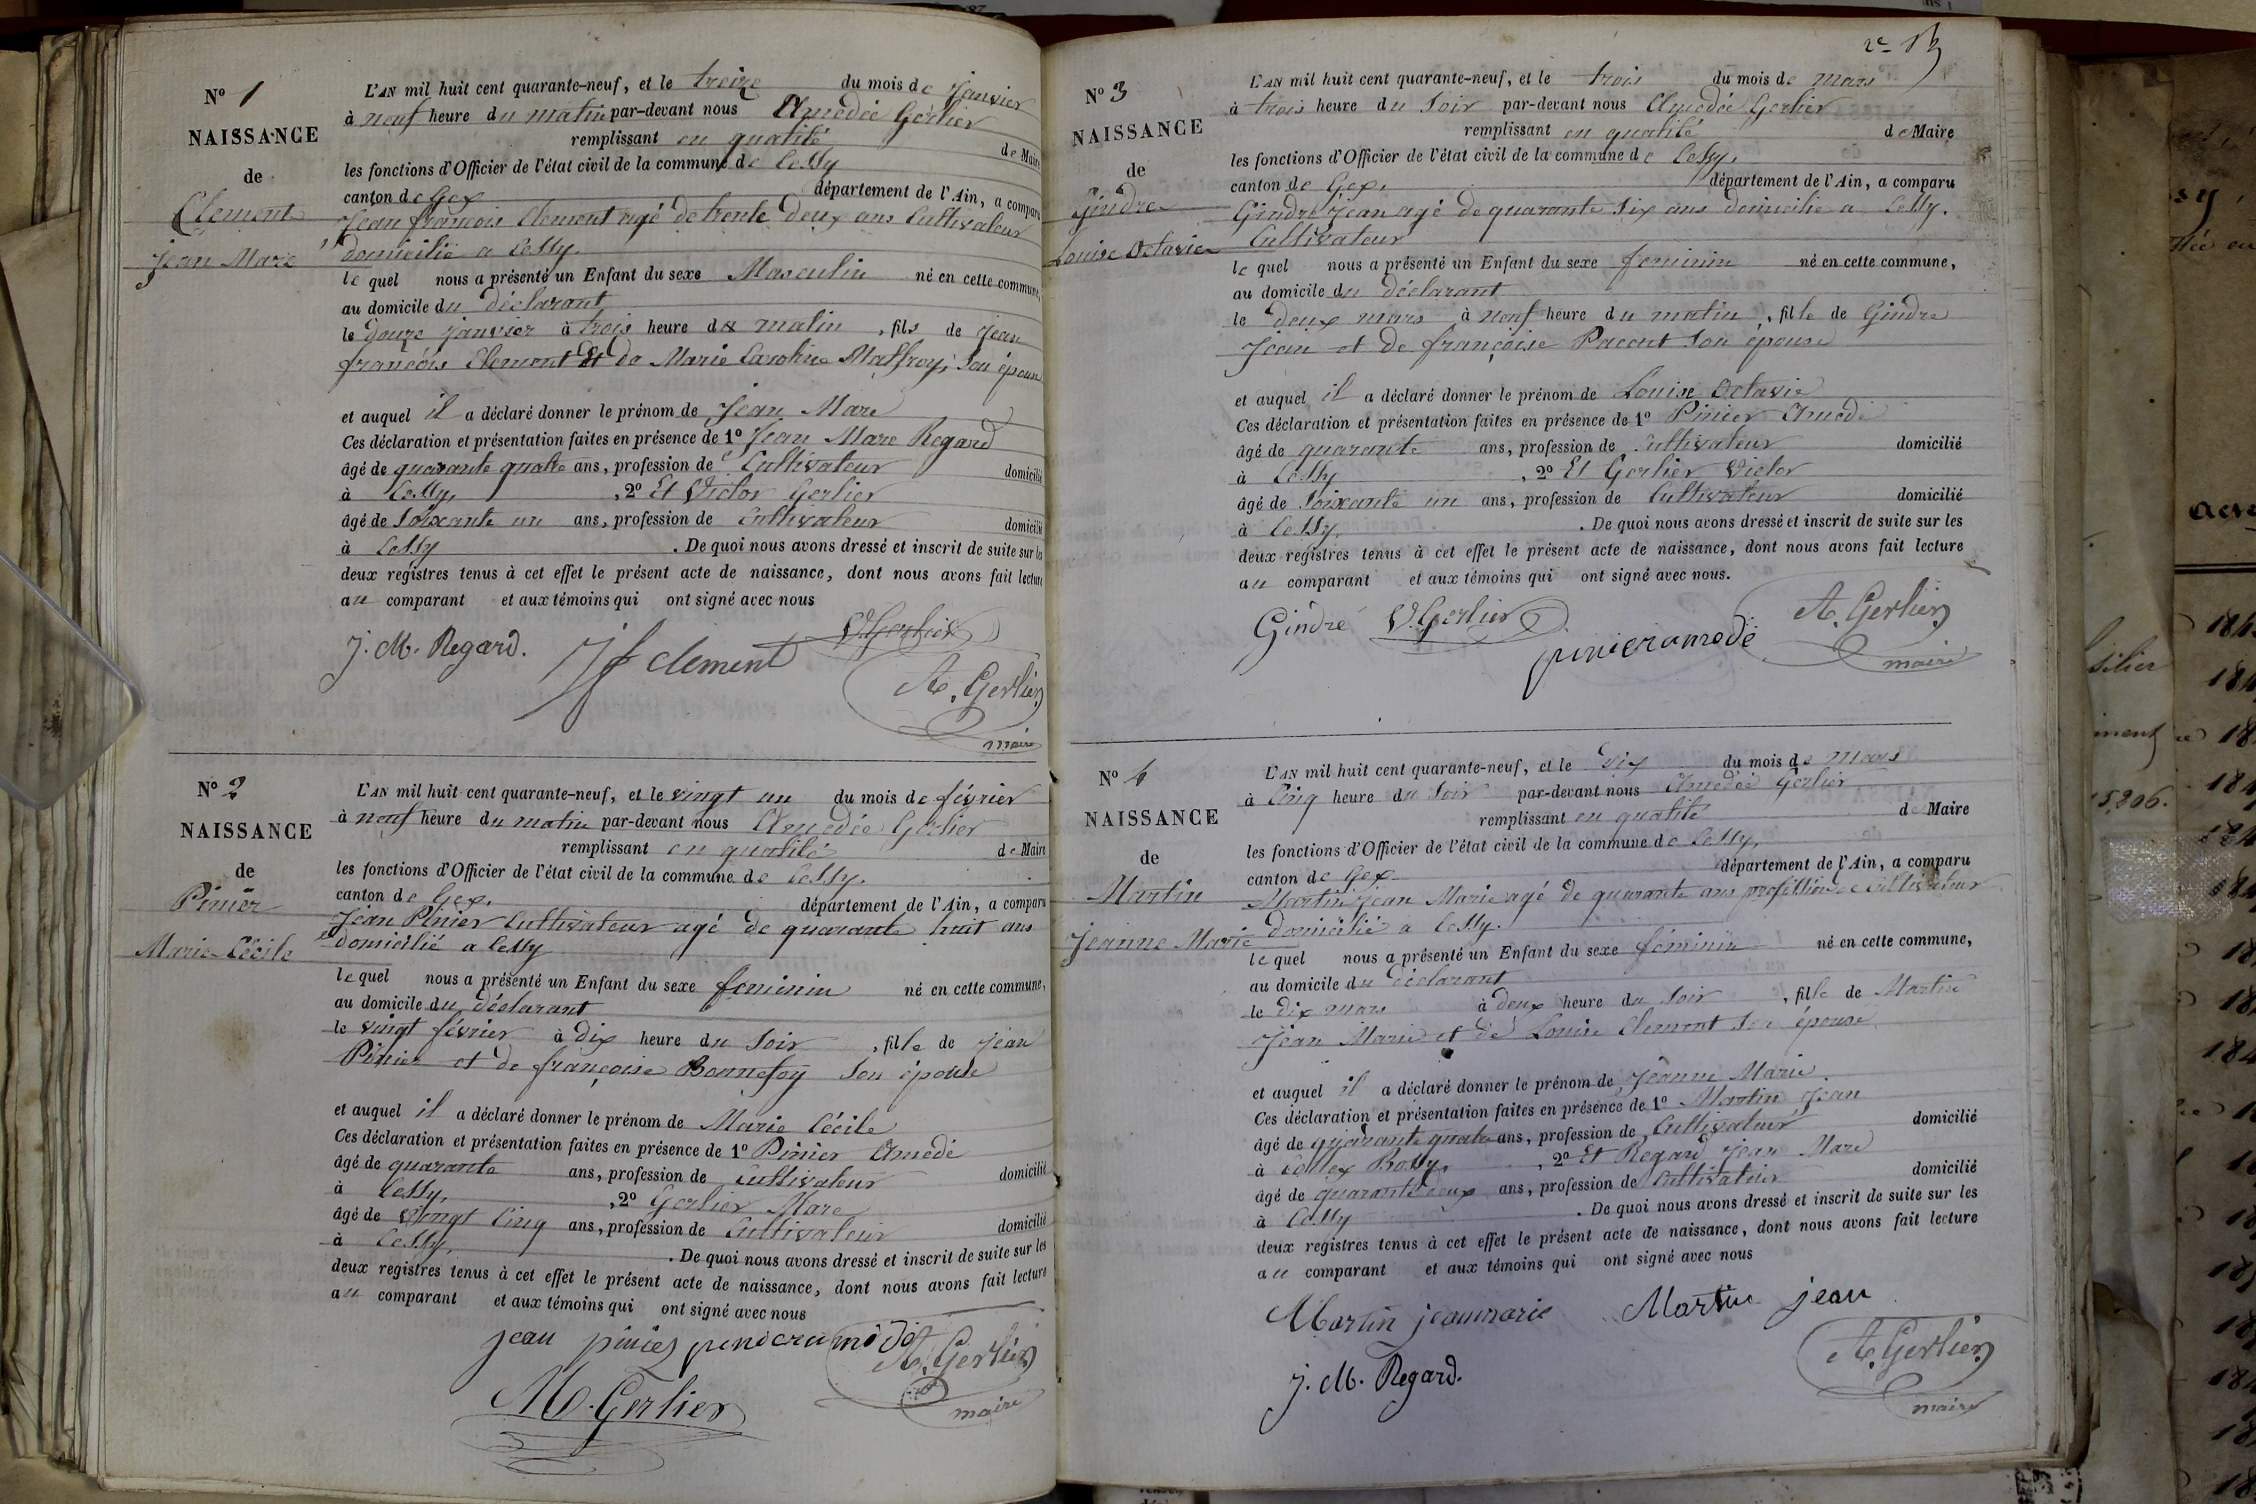 N° 1
NAISSANCE
de
Clement
Jean Marc
L'AN mil huit cent quarante-neuf, et le treize du mois de Janvier
à neuf heure du matin par-devant nous Amédée Gerlier
remplissant en qualité de Maire
les fonctions d'Officier de l'état civil de la commune de Cessy
canton de Gex département de l'Ain, a comparu
Jean françois Clement agé de trente deux ans Cultivateur
domicilié a Cessy.
le quel nous a présenté un Enfant du sexe Masculin né en cette commune,
au domicile du déclarant
le douze janvier à trois heure du matin, fils de Jean
françois Clement Et de Marie Caroline Maffroy, son épouse
et auquel il a déclaré donner le prénom de Jean Marc
Ces déclaration et présentation faites en présence de 1° Jean Marc Regard
âgé de quarante quatre ans, profession de Cultivateur domicilié
à Cessy, , 2° Et Victor Gerlier
âgé de soixante un ans, profession de Cultivateur domicilié
à Cessy . De quoi nous avons dressé et inscrit de suite sur les
deux registres tenus à cet effet le présent acte de naissance, dont nous avons fait lecture
au comparant et aux témoins qui ont signé avec nous
V. Gerlier
J. M. Regard. J f clement
A. Gerlier
maire
N° 2
NAISSANCE
de
Pinier
Marie Cécile
L'AN mil huit cent quarante-neuf, et le vingt un du mois de février
à neuf heure du matin par-devant nous Amédée Gerlier
remplissant en qualité de Maire
les fonctions d'Officier de l'état civil de la commune de Cessy.
canton de Gex. département de l'Ain, a comparu
Jean Pinier Cultivateur agé de quarante huit ans
domicilié a Cessy
le quel nous a présenté un Enfant du sexe feminin né en cette commune,
au domicile du déclarant
le vingt février à dix heure du soir , fille de Jean
Pinier et de françoise Bonnefoy son épouse
et auquel il a déclaré donner le prénom de Marie Cécile
Ces déclaration et présentation faites en présence de 1° Pinier Amédé
âgé de quarante ans, profession de cultivateur domicilié
à Cessy, , 2° Gerlier Marc
âgé de vingt cinq ans, profession de Cultivateur domicilié
à Cessy, . De quoi nous avons dressé et inscrit de suite sur les
deux registres tenus à cet effet le présent acte de naissance, dont nous avons fait lecture
au comparant et aux témoins qui ont signé avec nous
jean pinier
A. Gerlier
M. Gerlier maire
N° 3
NAISSANCE
de
Gindre
Louise Octavie
L'AN mil huit cent quarante-neuf, et le trois du mois de mars
à trois heure du soir par-devant nous Amedée Gerlier
remplissant en qualité de Maire
les fonctions d'Officier de l'état civil de la commune de Cessy,
canton de Gex, département de l'Ain, a comparu
Gindre Jean agé de quarante six ans domicilié a Cessy.
Cultivateur
le quel nous a présenté un Enfant du sexe feminin né en cette commune,
au domicile du déclarant
le deux mars à neuf heure du matin , fille de Gindre
Jean et de françoise Pacout son épouse
et auquel il a déclaré donner le prénom de Louise Octavie
Ces déclaration et présentation faites en présence de 1° Pinier Amédé
âgé de quarante ans, profession de Cultivateur domicilié
à Cessy , 2° Et Gerlier Victor
âgé de soixante un ans, profession de Cultivateur domicilié
à Cessy. . De quoi nous avons dressé et inscrit de suite sur les
deux registres tenus à cet effet le présent acte de naissance, dont nous avons fait lecture
au comparant et aux témoins qui ont signé avec nous.
Gindre V. Gerlier A. Gerlier
maire
N° 4
NAISSANCE
de
Martin
Jeanne Marie
L'AN mil huit cent quarante-neuf, et le dix du mois de mars
à Cinq heure du soir par-devant nous Amédée Gerlier
remplissant en qualité de Maire
les fonctions d'Officier de l'état civil de la commune de Cessy,
canton de Gex département de l'Ain, a comparu
Martin jean Marie agé de quarante ans profession de cultivateur
domicilié a Cessy.
le quel nous a présenté un Enfant du sexe féminin né en cette commune,
au domicile du déclarant
le dix mars à deux heure du soir , fille de Martin
Jean Marie et de Louise Clement son épouse
et auquel il a déclaré donner le prénom de Jeanne Marie
Ces déclaration et présentation faites en présence de 1° Martin Jean
âgé de quarante quatre ans, profession de Cultivateur domicilié
à Collex Bossy, , 2° Et Regard Jean Marc
âgé de quarante deux ans, profession de Cultivateur domicilié
à Cessy . De quoi nous avons dressé et inscrit de suite sur les
deux registres tenus à cet effet le présent acte de naissance, dont nous avons fait lecture
au comparant et aux témoins qui ont signé avec nous
Martin jeanmarie Martin jean
A. Gerlier
J. M. Regard. maire